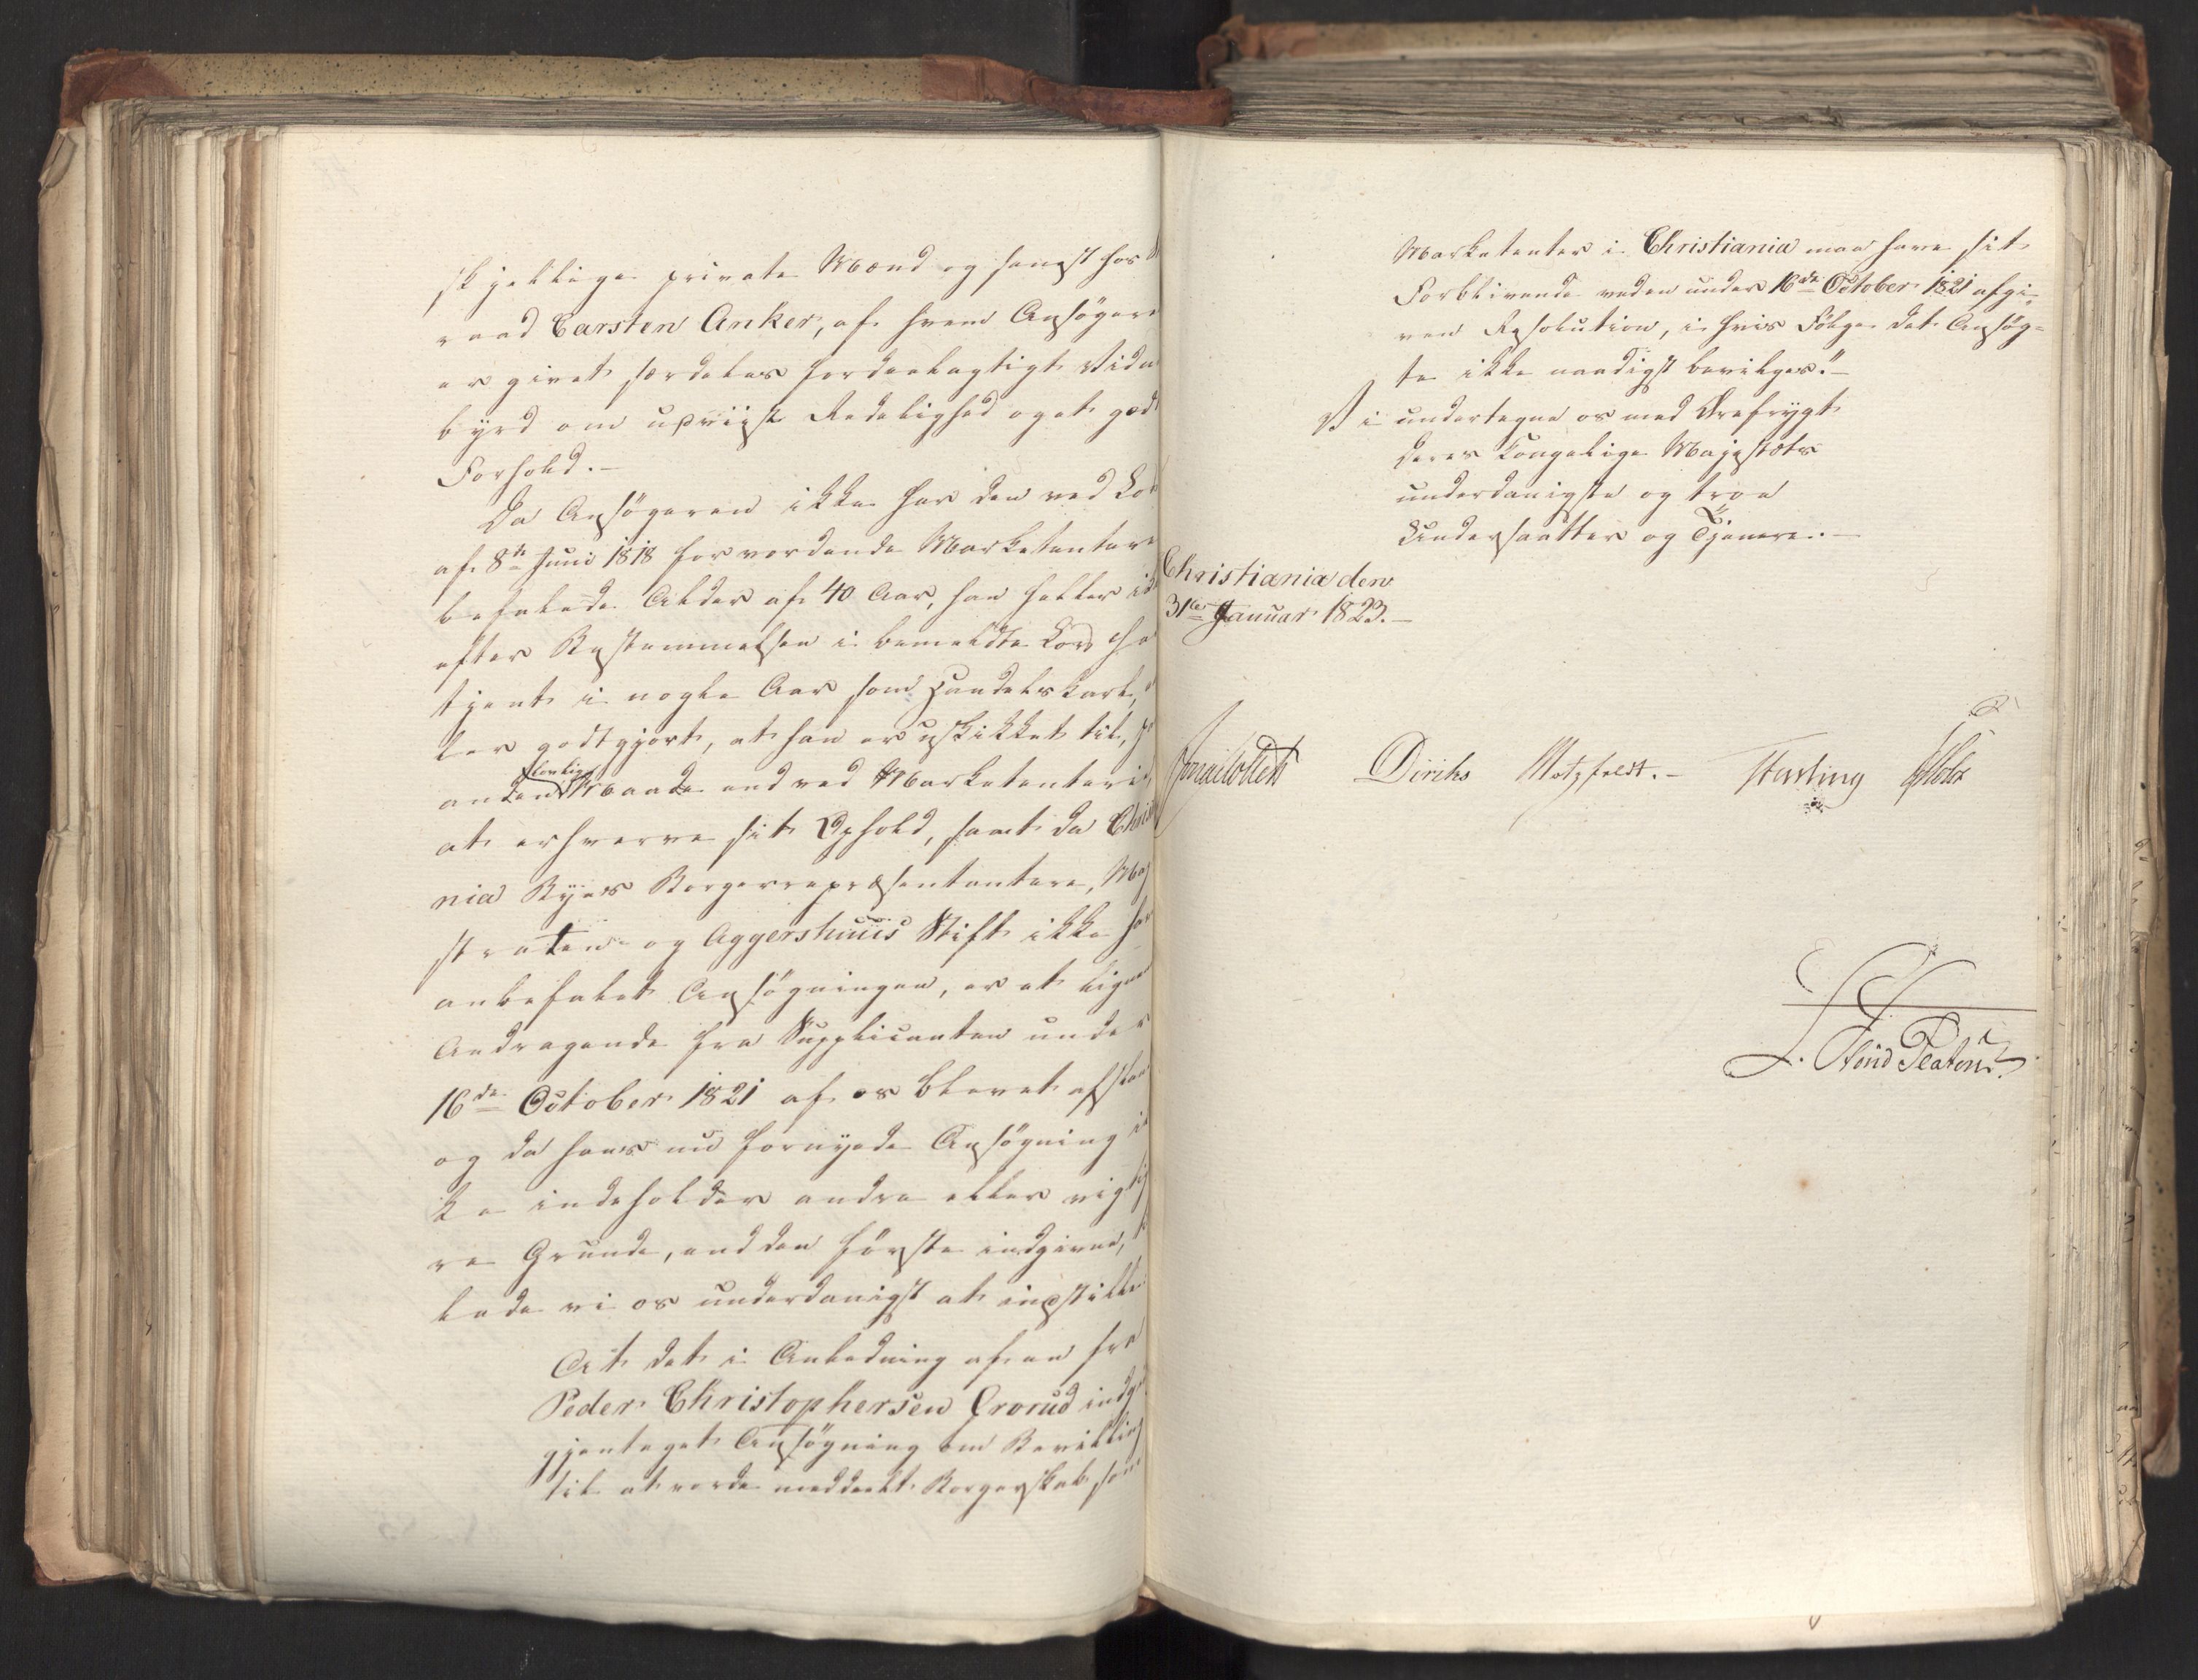 skjellige private Mænd og senest hos
raad Carsten Anker, af hvem Ansögeren
er givet særdeles fordeelagtigt Vidnes
byrd om udviist Redelighed og et godt
Forhold. –
Da Ansögeren ikke har den ved Lov
af 8de Juni 1818 for vordende Marketentere
befalede Alder af 40 Aar, han heller ik
efter Bestemmelsen i bemeldte Lov ha
tjent i nogle Aar som Handelskarl,
ler godtgjort, at han er uskikket til,
anden lovlig Maade end ved Marketenteri
at erhverve sit Ophold, samt da Christia
nia Byes Borgerrepræsentantere, Magi
straten og Aggershuus Stift ikke har
anbefalet Ansögningen, er et lignende
Andragende fra Supplicanten under
16de October 1821 af os blevet afslaaet
og da hans nu fornyede Ansögning ik
ke indeholder andre eller vigtige
re Grunde, end den förste indgivne,
lade vi os underdanigst at indstille
At det i Anledning af en fra
Peder Christophersen Grorud indgiven
gjentaget Ansögning om Bevilling
til at vorde meddeelt Borgerskab som
Marketenter i Christiania maa have sit
Forblivende ved en under 16de October 1821 afgi-
ven Resolution, i hvis Fölge det Ansög-
te ikke naadigst bevilges." –
Vi undertegne os med Ærefrygt
Deres Kongelige Majestæts
underdanigste og troe
Undersaatter og Tjenere. –
Christiania den
31te Januar 1823. –
Jonas Collett Diriks Motzfeldt. – Fasting Holst
L. Roend Platou